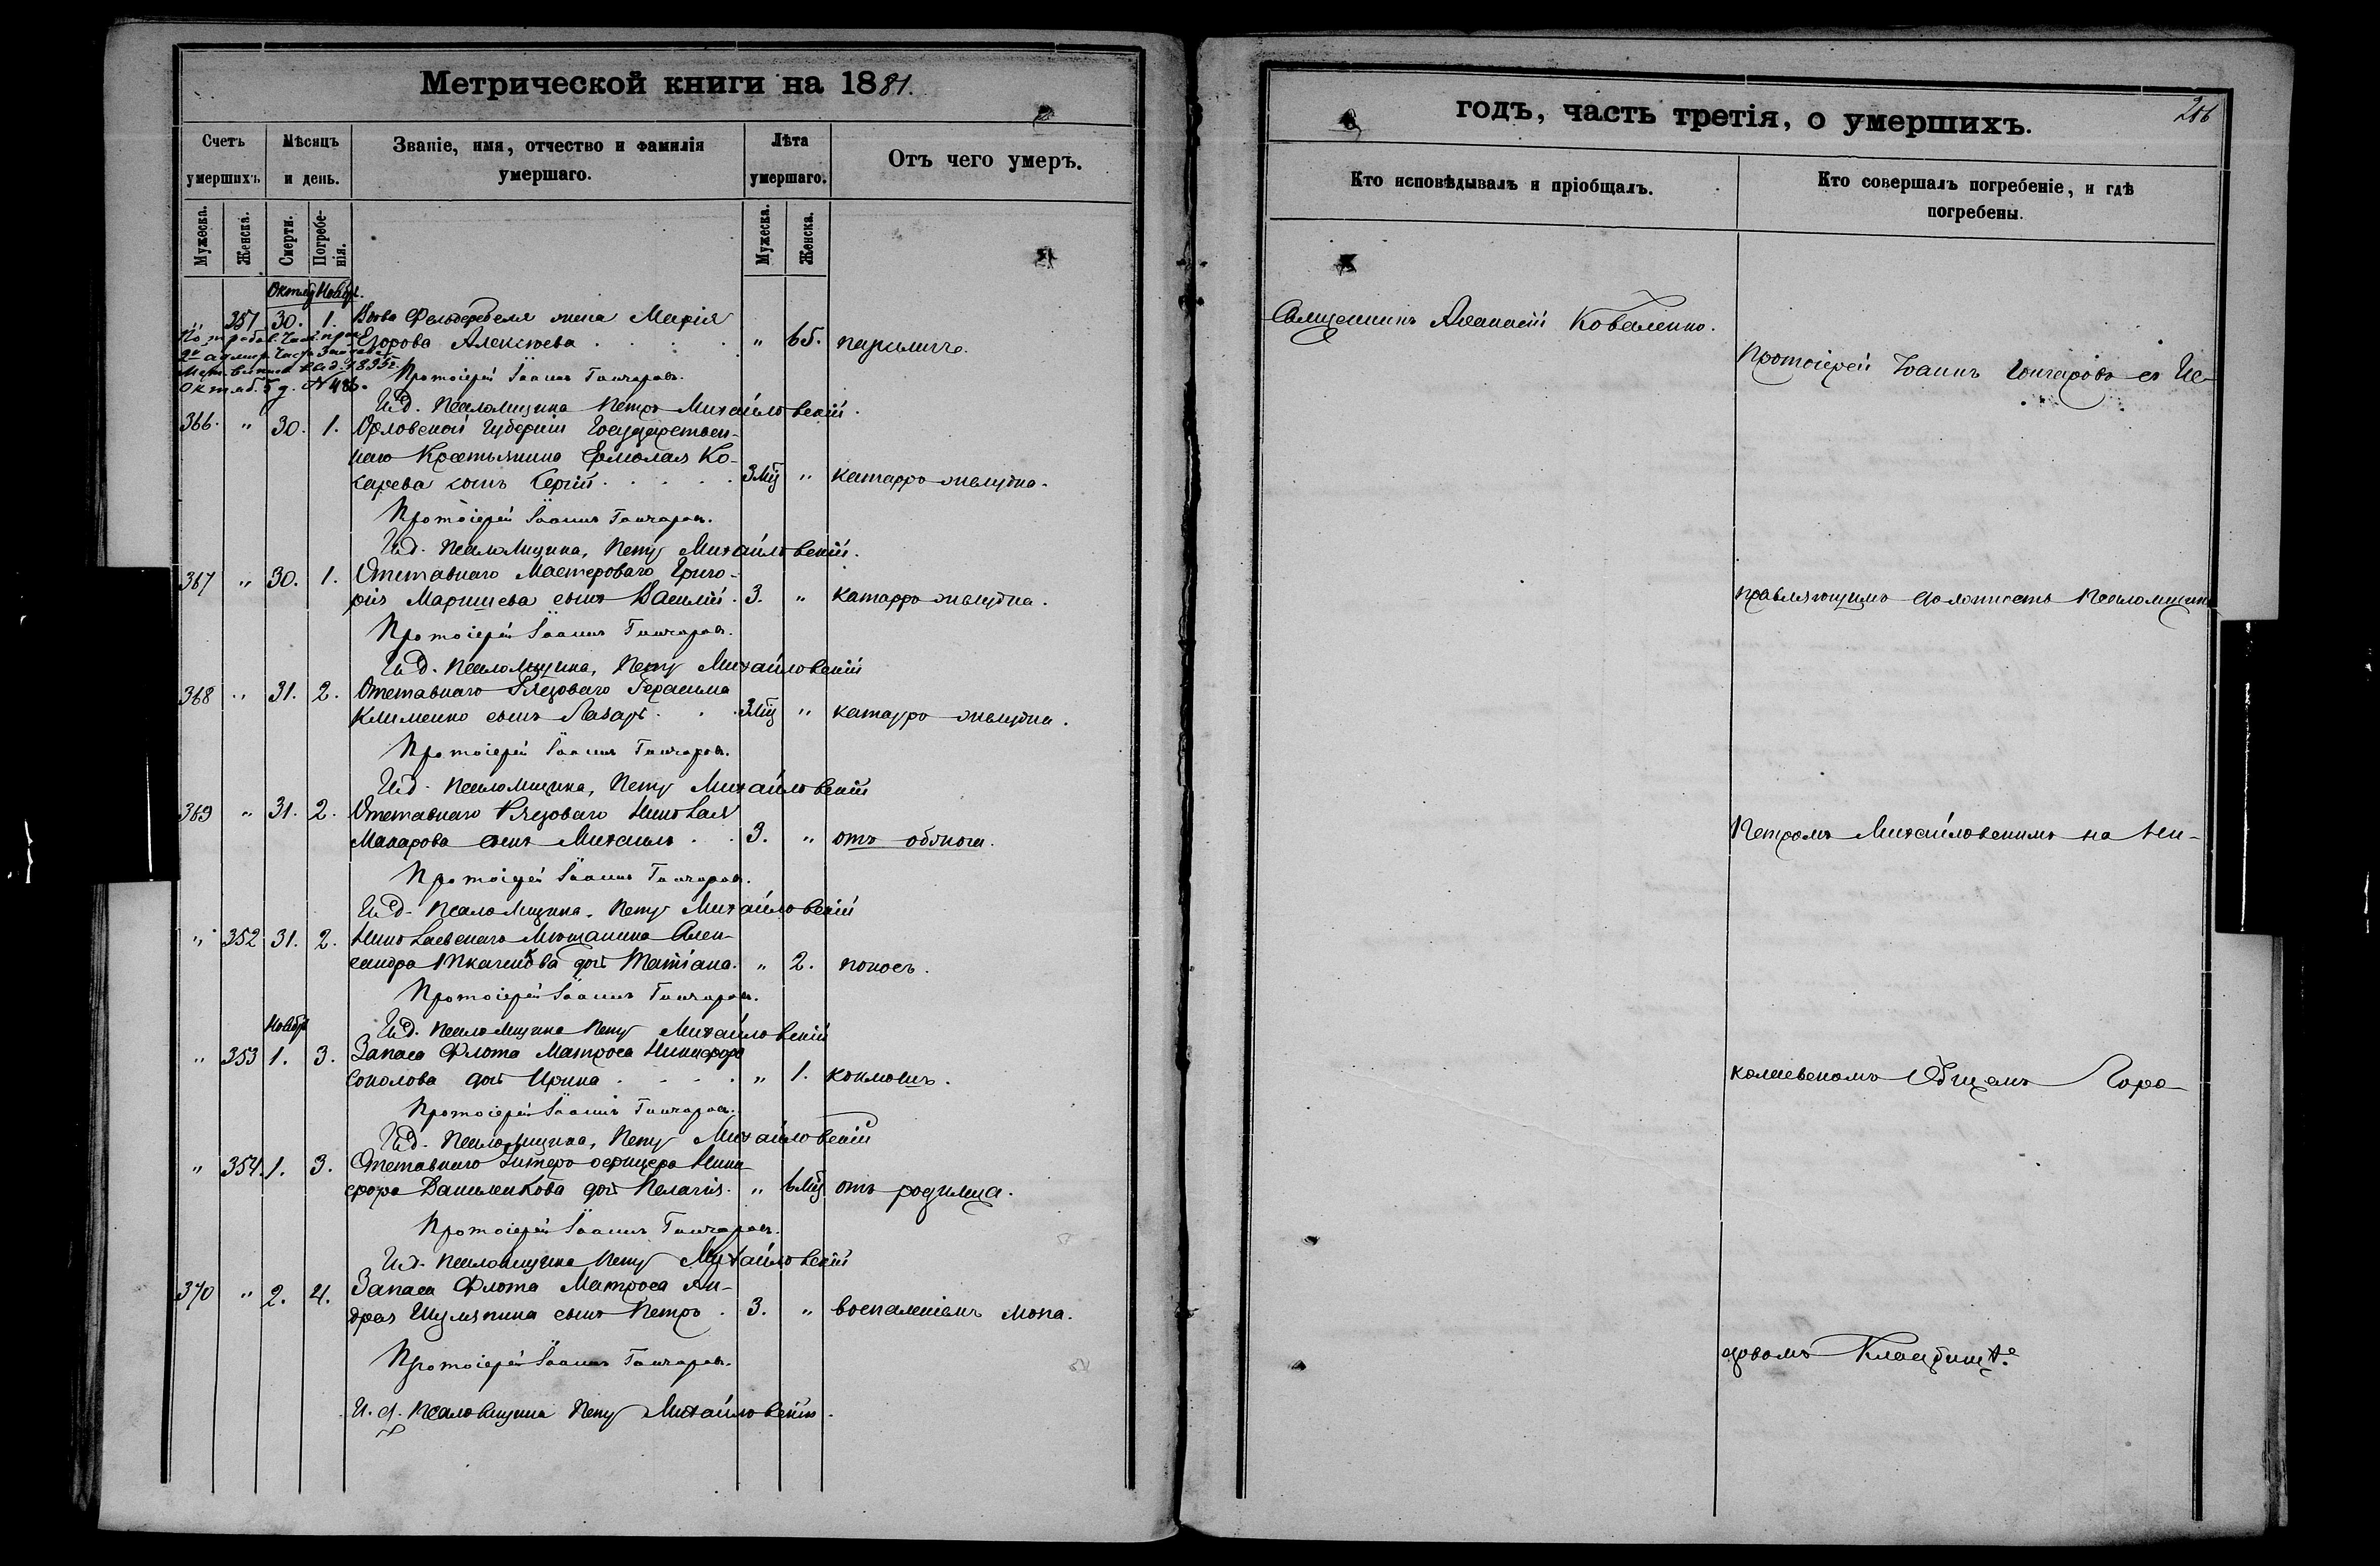 Метрической книги на 1881.
Счетъ умершихъ
Мѣсяцъ и день.
Званіе, имя, отчество и фамилія умершаго.
Лѣта умершаго.
Отъ чего умеръ.
Мужеска.
Женска.
Смерти.
Погребенія.
Мужеска.
Женска.
Октяб Ноябр.
" 351 30. 1. Вдова Фельдфебеля жена Марія
Егорова Алексѣева " 65. параличъ.
Октяб. 5 д. № 486.
Протоіерей Іоаннъ Гончаровъ.
И. д. Псаломщика Петръ Михайловскій.
366. " 30. 1. Орловской Губерніи Государствен-
наго Крестьянина Ермолая Ко-
сарева сынъ Сергій 3 мц " катарро желудка.
Протоіерей Іоаннъ Гончаровъ.
И. д. Псаломщика, Петръ Михайловскій.
367 " 30. 1. Отставнаго Мастероваго Григо-
рія Маришева сынъ Василій. 3. " катарро желудка.
Протоіерей Іоаннъ Гончаровъ.
И. д. Псаломщика, Петръ Михайловскій
368 " 31. 2. Отставнаго Рядоваго Герасима
Клименко сынъ Лазарь 3 мц " катарро желудка.
Протоіерей Іоаннъ Гончаровъ.
И. д. Псаломщика, Петръ Михайловскій
369 " 31. 2. Отставнаго Рядоваго Николая
Макарова сынъ Михаилъ 3. " отъ обжога.
Протоіерей Іоаннъ Гончаровъ.
И. д. Псаломщика, Петръ Михайловскій
" 352 31. 2. Николаевскаго Мѣщанина Алек-
сандра Ткаченкова дочь Татіана. " 2. поносъ.
Протоіерей Іоаннъ Гончаровъ.
Ноябр
И. д. Псаломщика Петръ Михайловскій
" 353 1. 3. Запаса Флота Матроса Никифора
Соколова дочь Ирина " 1. коклюшъ.
Протоіерей Іоаннъ Гончаровъ.
И. д. Псаломщика, Петръ Михайловскій
" 354. 1. 3. Отставнаго Унтеръ офицера Ники-
фора Даниленкова дочь Пелагія. " 6 мц отъ родимца.
Протоіерей Іоаннъ Гончаровъ.
И. д. Псаломщика Петръ Михайловскій
370 " 2. 4. Запаса Флота Матроса Ан-
дрея Шуляпина сынъ Петръ. 3. " воспаленіемъ мозга.
Протоіерей Іоаннъ Гончаровъ.
И. д. Псаломщика Петръ Михайловскій.
годъ, часть третія, о умершихъ.
Кто исповѣдывалъ и пріобщалъ.
Кто совершалъ погребеніе, и гдѣ погребены.
Священникъ Аѳанасій Коваленко.
Протоіерей Іоаннъ Гончаровъ съ Ис-
правляющимъ должность Псаломщика
Петромъ Михайловскимъ на Ни-
колаевскомъ Общемъ Горо-
довомъ Кладбищѣ.